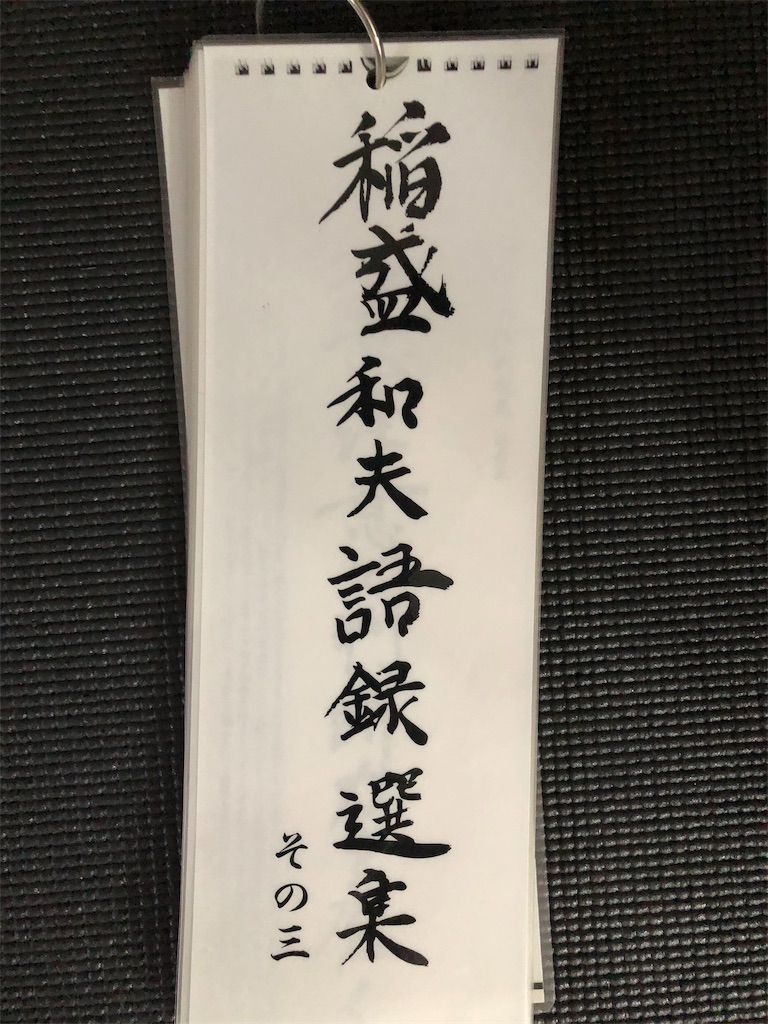 稲盛和夫語録選集
その三